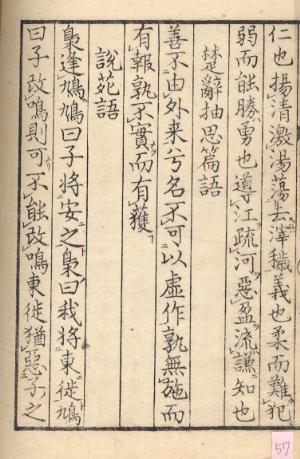 仁也揚清激湯蕩去滓穢義也柔而難犯
弱而能勝勇也導江疏河惡盈流謙知也
楚辭抽思篇語
善不由外来兮名不可以虛作孰無施而
有報孰不實而有獲
說苑語
梟逢鳩鳩曰子将安之梟曰我将東徙鳩
曰子改鳴則可不能改鳴東徙猶惡子之
57